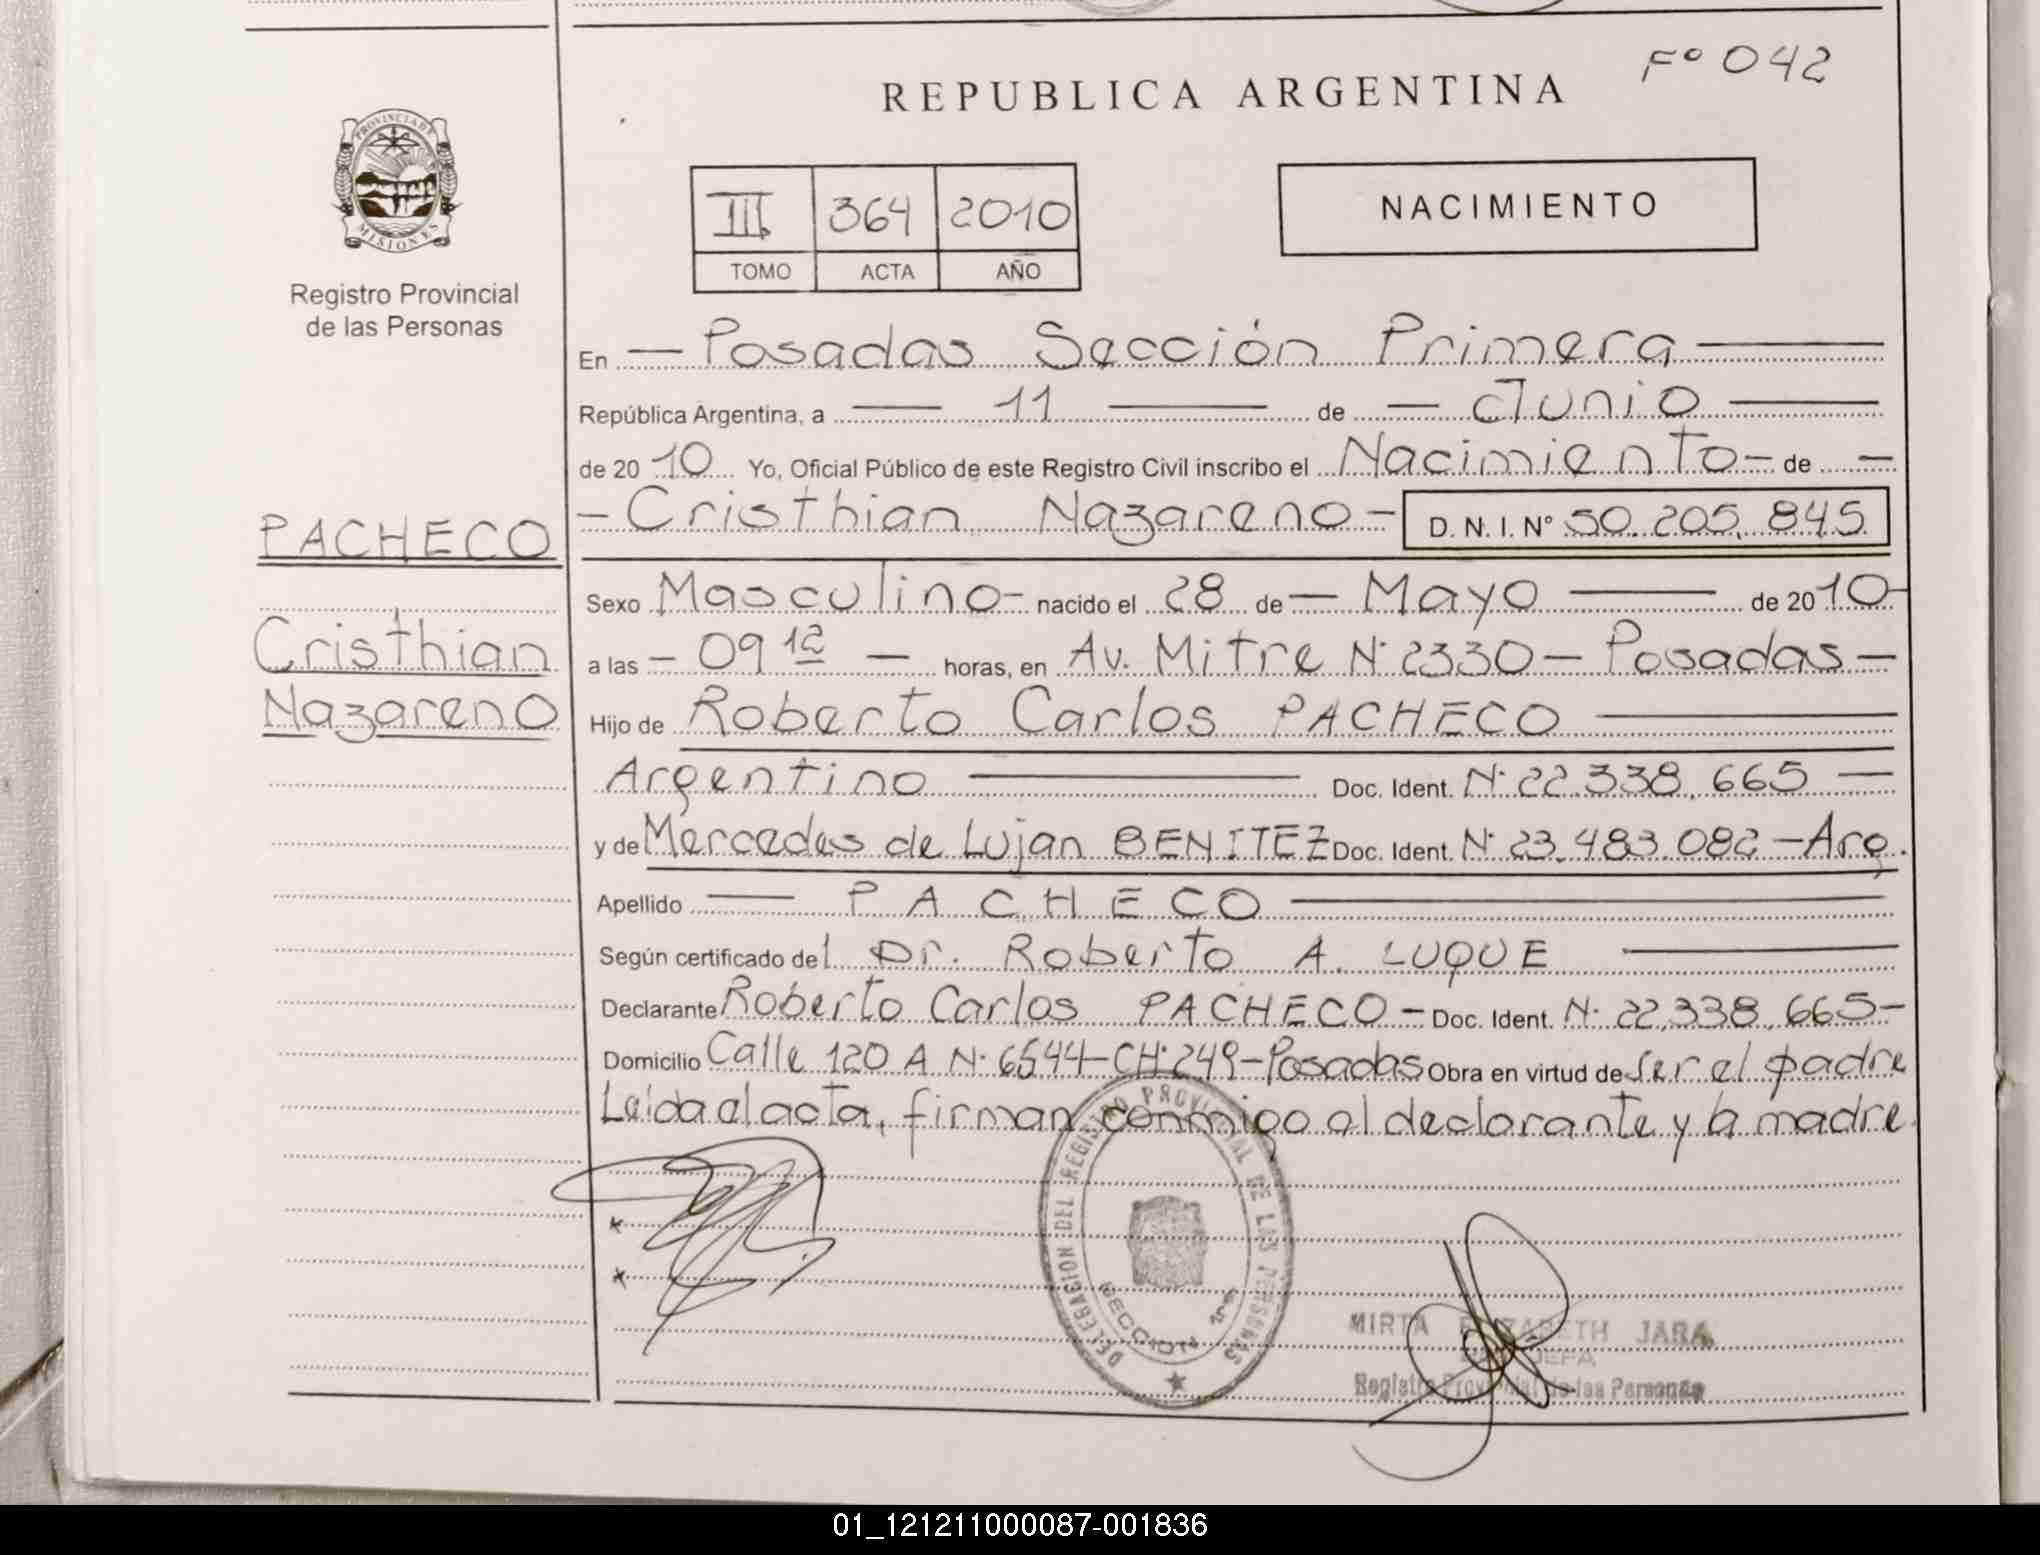 Fº 042
REPUBLICA ARGENTINA
PROVINCIA DE
MISIONES
Registro Provincial
de las Personas
III 364 2010
TOMO ACTA AÑO
NACIMIENTO
En — Posadas Sección Primera —
República Argentina, a — 11 — de — Junio —
de 20 10 Yo, Oficial Público de este Registro Civil inscribo el Nacimiento — de —
— Cristhian Nazareno — D. N. I. Nº 50.205.845
PACHECO
Cristhian
Nazareno
Sexo Masculino — nacido el 28 de — Mayo — de 20 10 —
a las — 09 12 — horas, en Av. Mitre Nº 2330 — Posadas —
Hijo de Roberto Carlos PACHECO —
Argentino — Doc. Ident. Nº 22.338.665 —
y de Mercedes de Lujan BENITEZ Doc. Ident. Nº 23.483.082 — Arg.
Apellido — PACHECO —
Según certificado del Dr. Roberto A. LUQUE —
Declarante Roberto Carlos PACHECO — Doc. Ident. Nº 22.338.665 —
Domicilio Calle 120 A Nº 6544 — CH. 249 — Posadas Obra en virtud de ser el padre
Leida el acta, firman conmigo el declarante y la madre.
DELEGACION DEL REGISTRO PROVINCIAL DE LAS PERSONAS
SECCION 1ra
MIRTA ELIZABETH JARA
Registro Provincial de las Personas
01_121211000087-001836